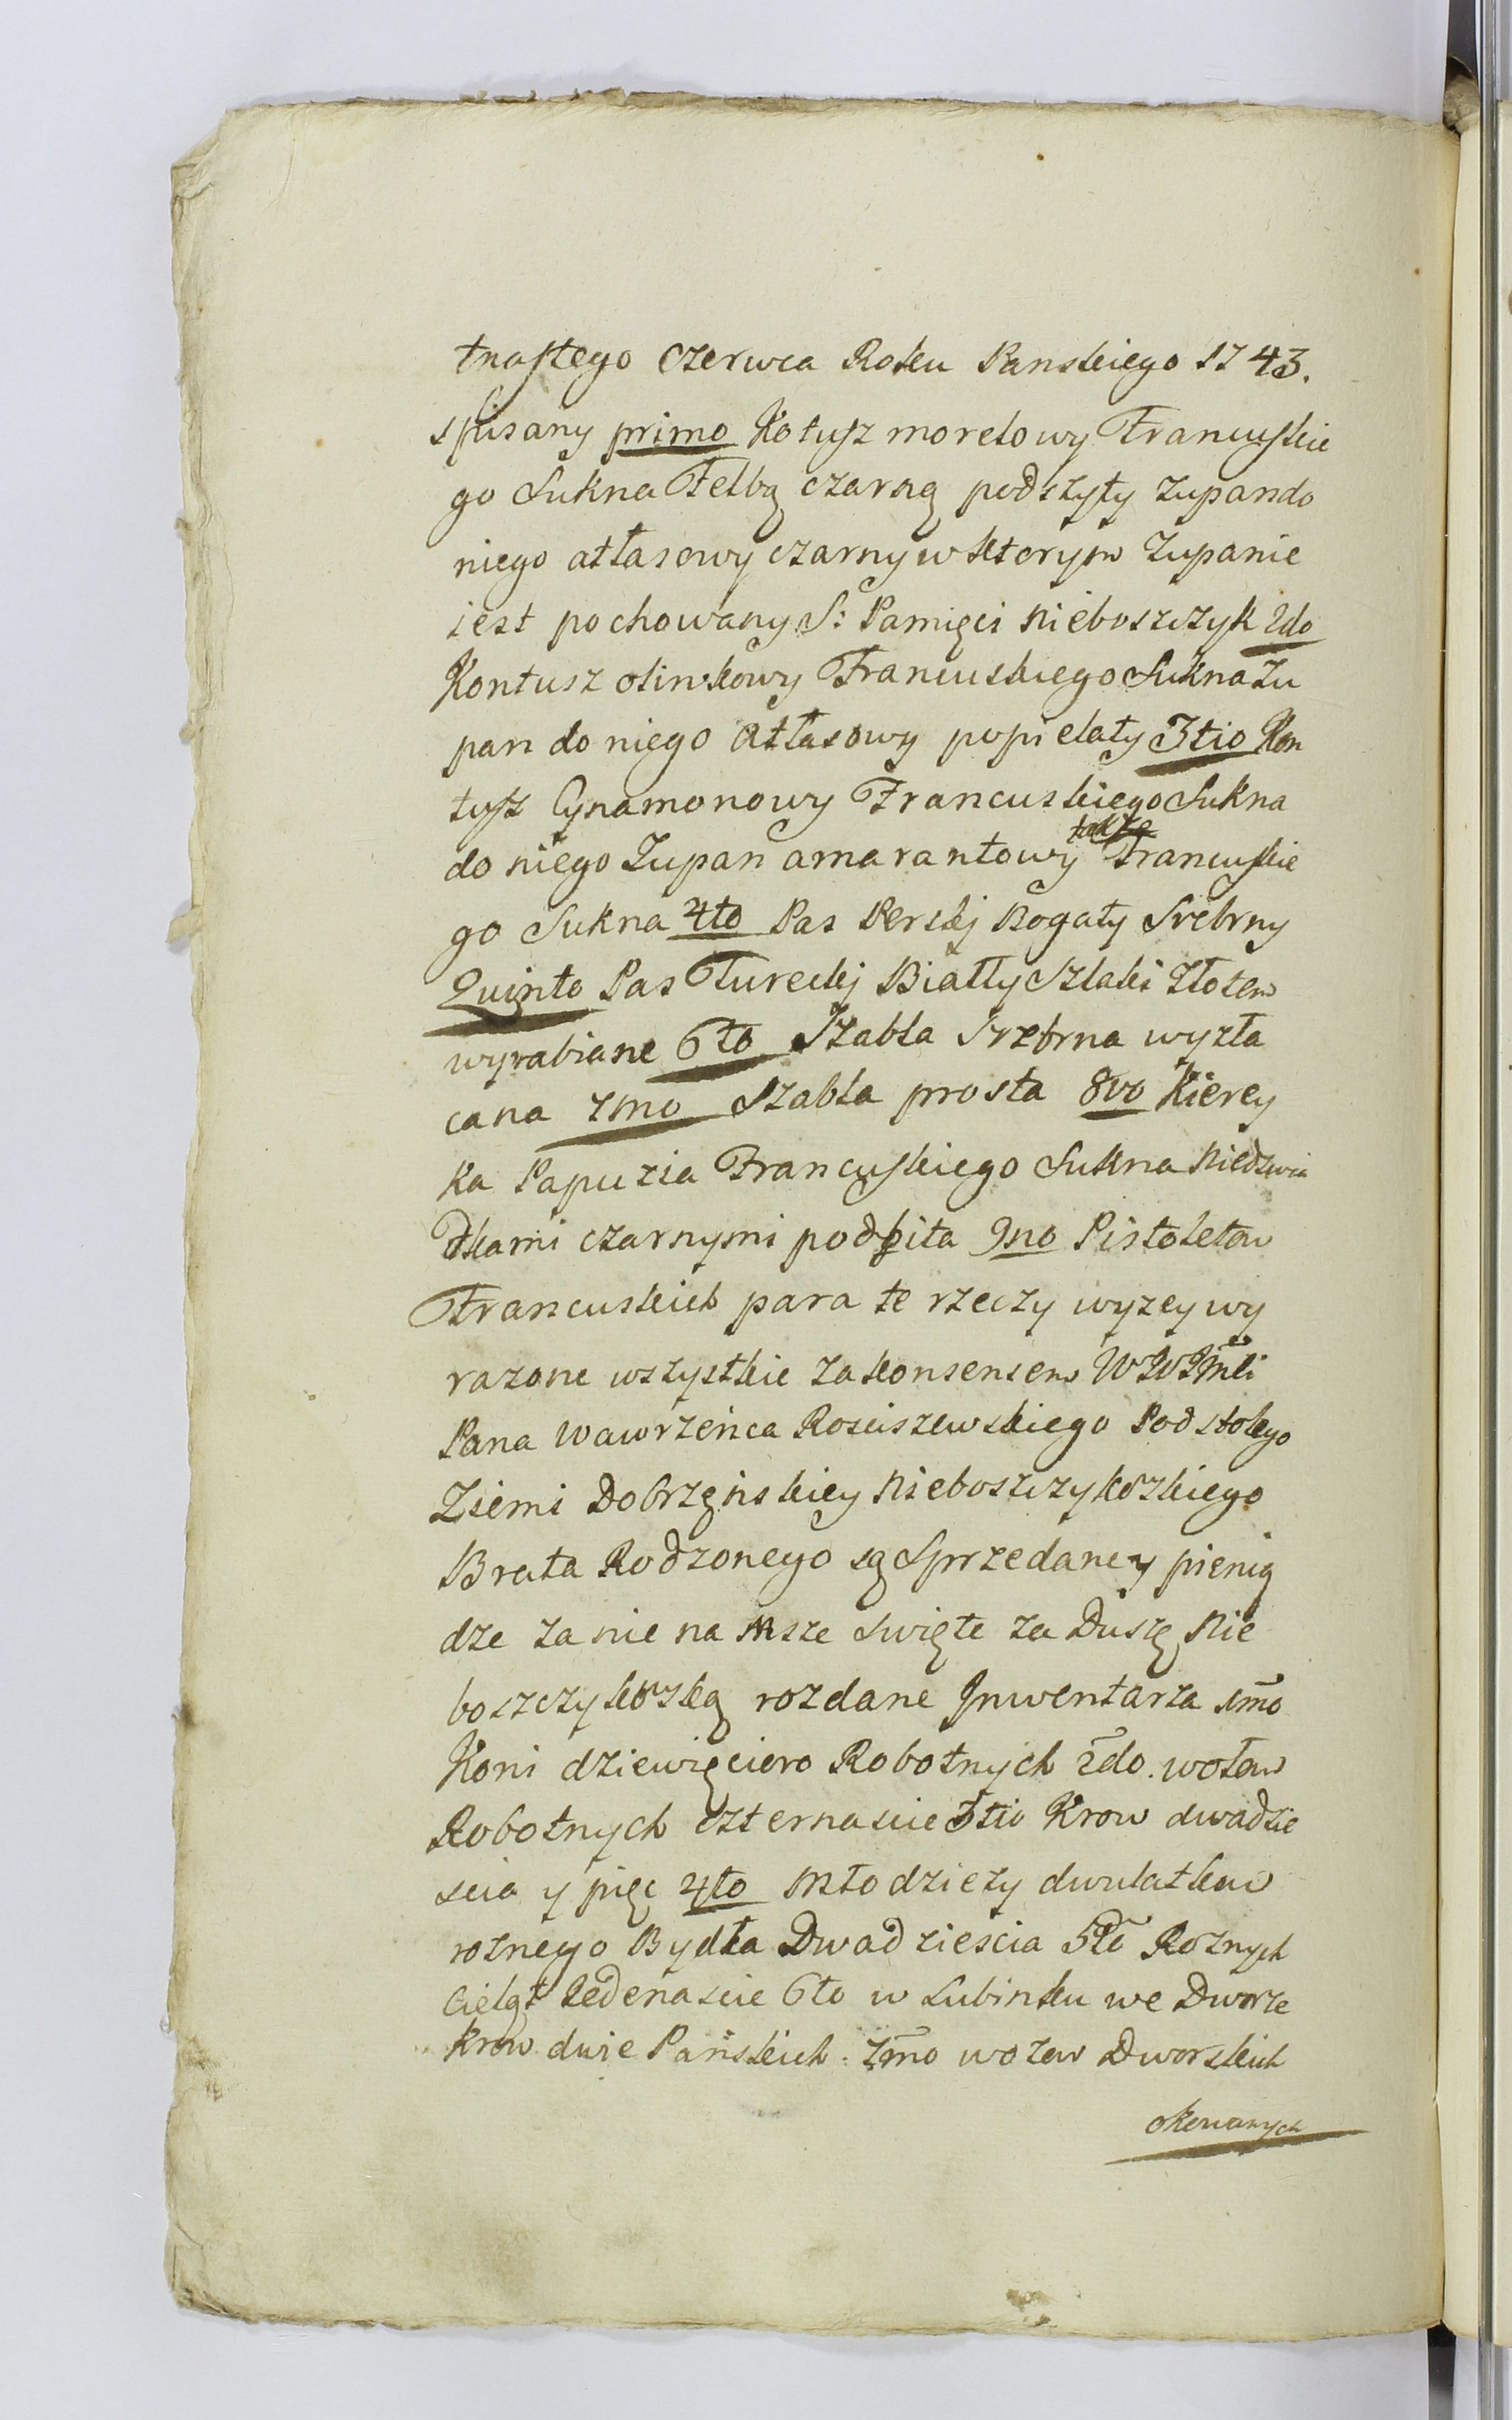 tnastego Czerwca Roku Panskiego 1743.
spisany primo Kotusz morelowy Francuskie
go Sukna Felbą czarną podszyty zupan do
niego atłasowy czarny w ktorym Zupanie
iest pochowany S: Pamięci Nieboszczyk 2do
Kontusz oliwkowy Francuskiego Sukna Zu
pan do niego Atłasowy popielaty 3tio Kon
tusz Cynamonowy Francuskiego Sukna
do niego Zupan amarantowy także Francuskie
go Sukna 4to Pas Perskj Bogaty Srebrny
Quinto Pas Tureckj Biały Szlaki złotem
wyrabiane 6to Szabla Srzebrna wyzła
cana 7mo Szabla prosta 8vo Kierey
ka Papuzia Francuskiego Sukna Niedzwia
dkami czarnymi podbita 9no Pistoletow
Francuskich para te rzeczy wyzey wy
razone wszystkie za konsensem
Pana Wawrzenca Rosciszewskiego Podstolego
Ziemi Dobrzęnskiey Nieboszczykoskiego
Brata Rodzonego są Sprzedane y pienią
dze za nie na Msze Swięte za Duszę Nie
boszczykoską rozdane Jnwentarza 1mo
Koni dziewięcioro Robotnych 2do. wołow
Robotnych czternascie 3tio Krow dwadzie
scia y pięc 4to Młodziezy dwulatkow
roznego Bydła Dwadziescia 5to Roznych
Cieląt Jedenascie 6to w Lubinku we Dworze
krow dwie Pańskich. 7mo wozow Dworskich
okowanych